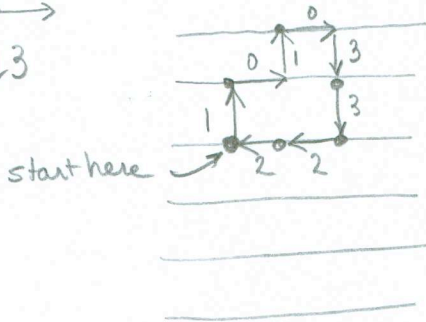 0
3
0 1 3
1 3
start here 2 2